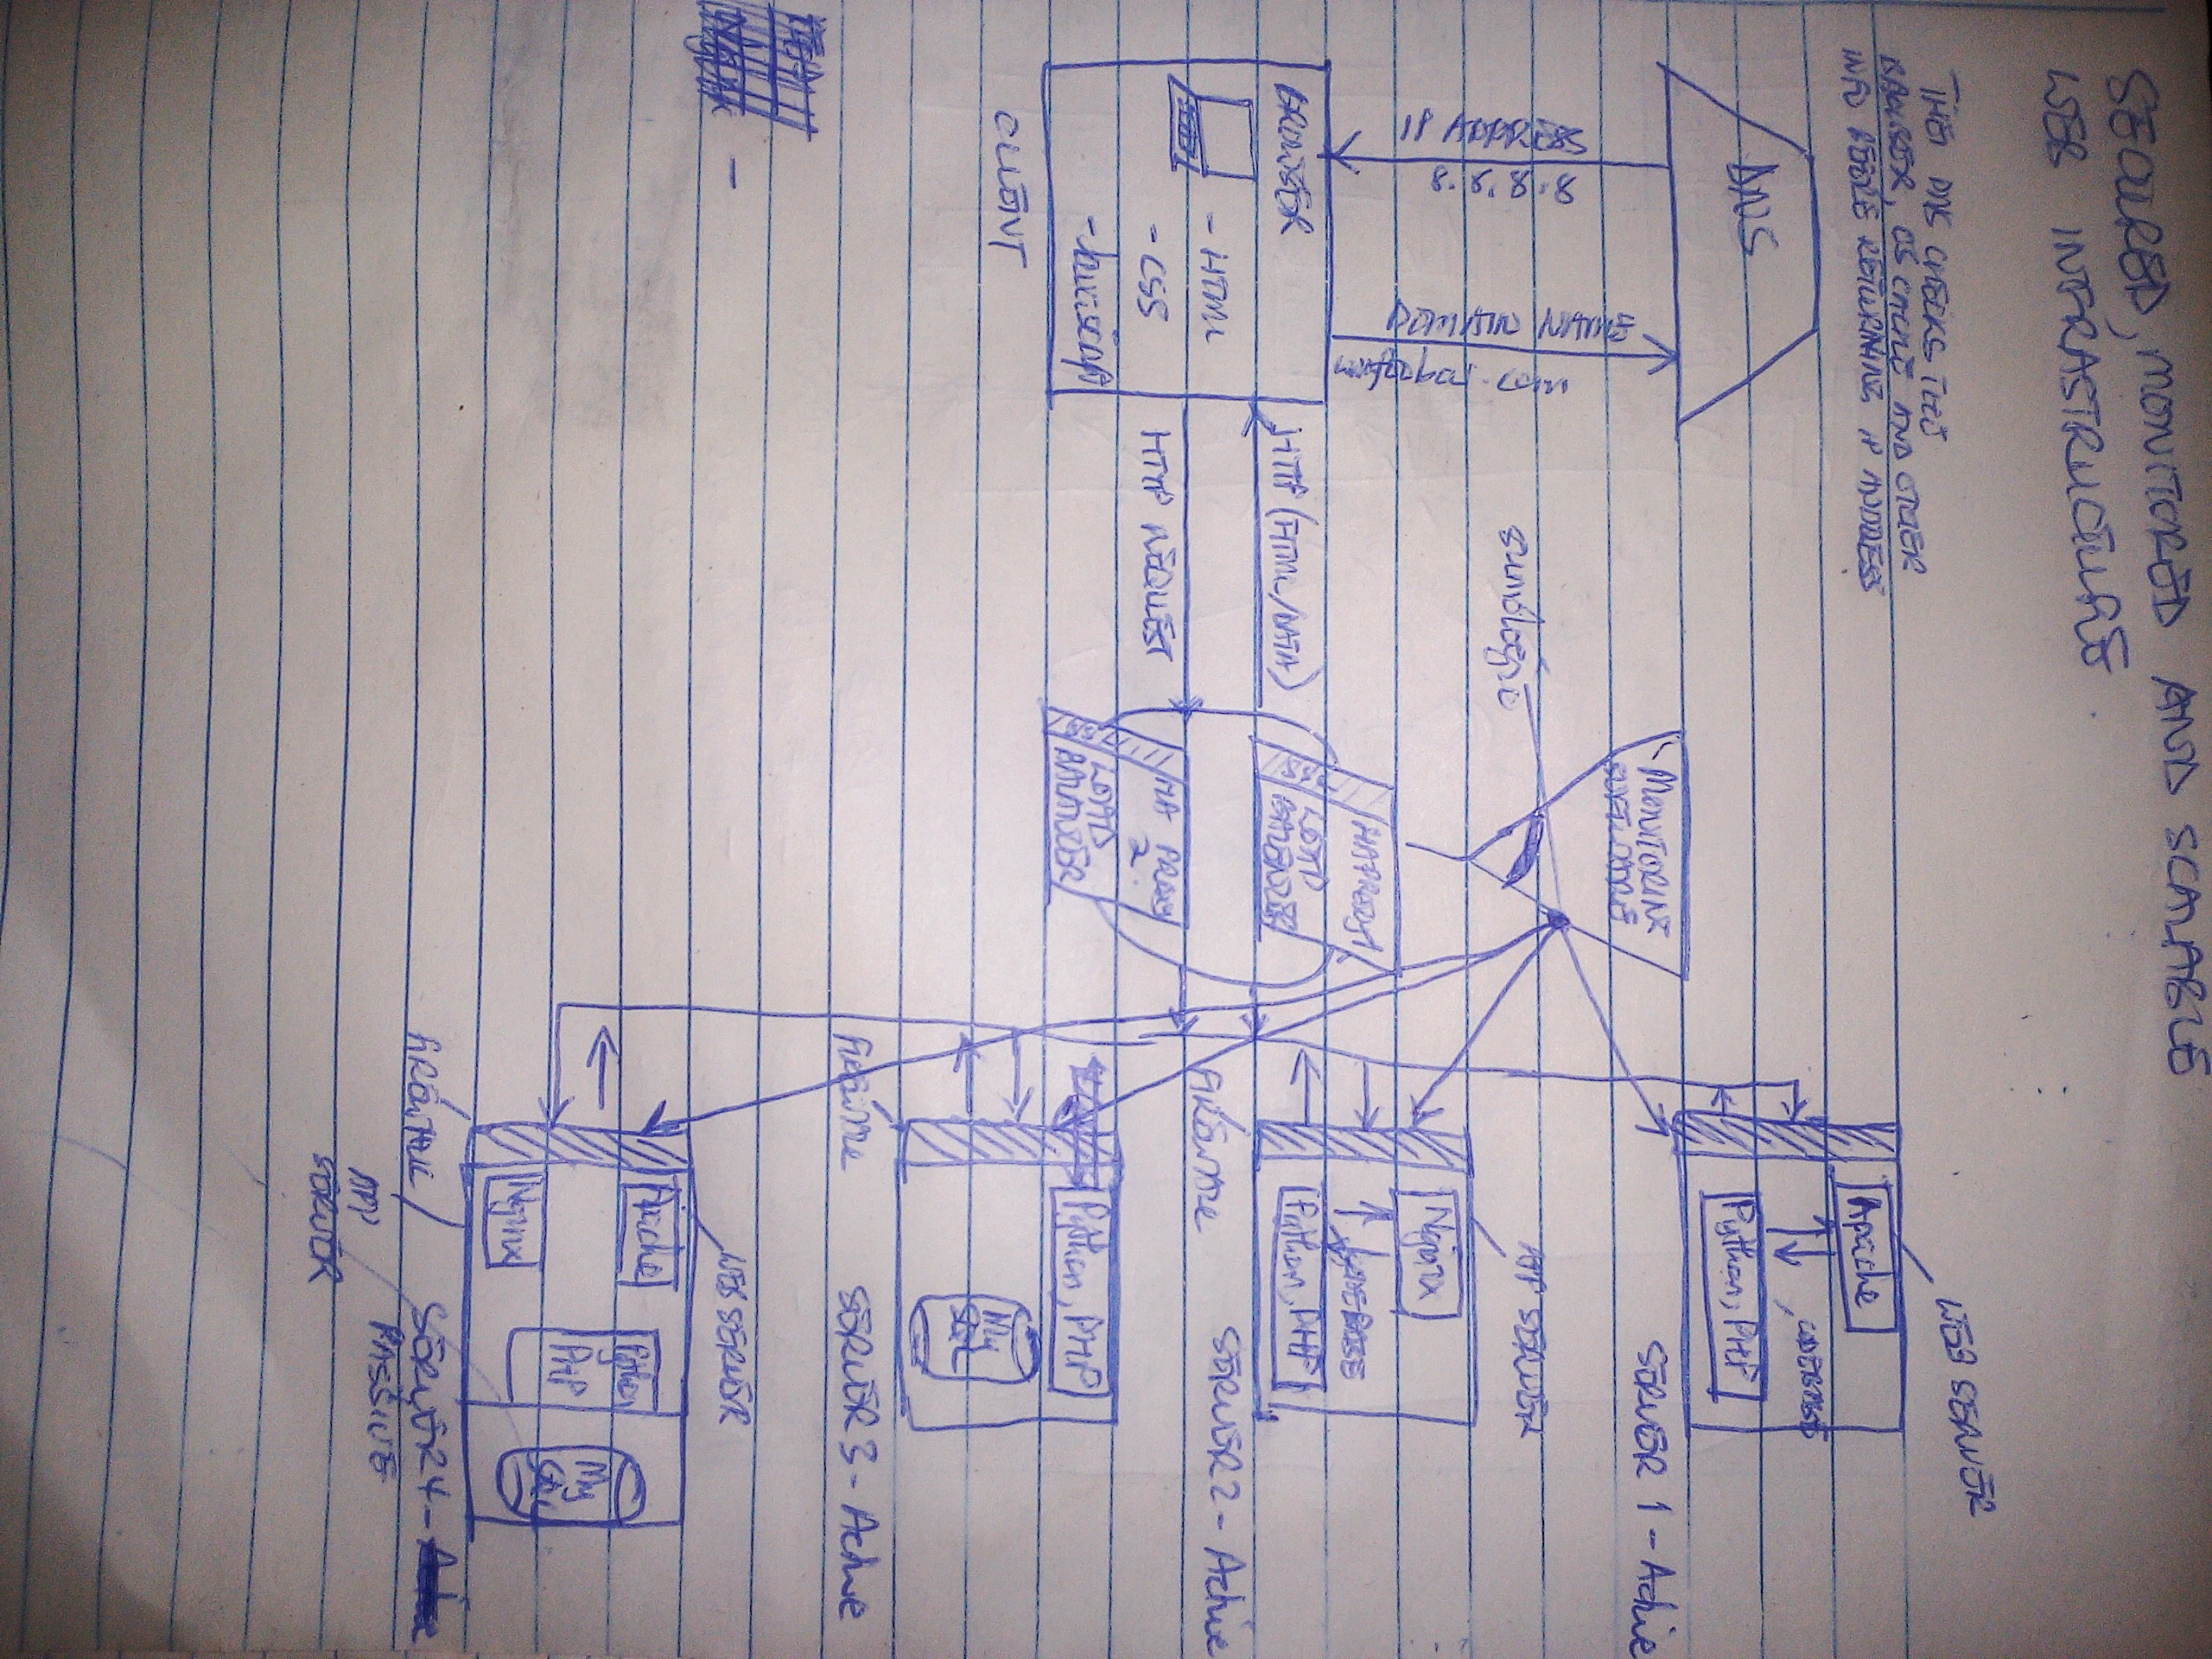 SECURED, MONITORED AND SCALABLE
WEB INFRASTRUCTURE.
THE DNS CHECKS THE
BROWSER, OS CACHE AND OTHER
INFO BEFORE RETURNING IP ADDRESS
DNS
IP ADDRESS
8.8.8.8
DOMAIN NAME
BROWSER
- HTML
- CSS
- Javascript
CLIENT
HTTP (HTML/DATA)
HTTP REQUEST
MONITORING
SOFTWARE
sumologic
HAPROXY1
LOAD
BALENZER
HA PROXY
2.
LOAD
BALANZER
WEB SERVER
Apache
CODEBASE
Python, PHP
SERVER 1 - Active
APP SERVER
Nginx
CODEBASE
Python, PHP
FIREWALL
SERVER 2 - Active
Python, PHP
My
SQL
FIREWALL
SERVER 3 - Active
WEB SERVER
Apache
Python
PHP
My
SQL
Nginx
FIREWALL
SERVER 4 -
PASSIVE
APP
SERVER